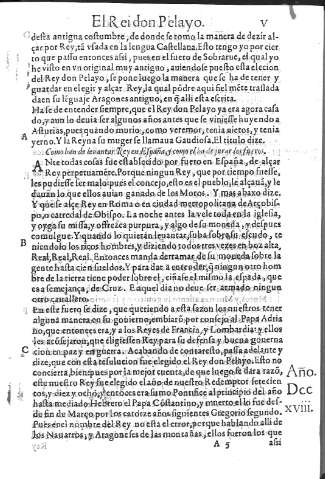 El Rei don Pelayo. V
desta antigua costumbre, de donde se tomo la manera de dezir al-
çar por Rey, tã vsada en la lengua Castellana. Esto tengo yo por cier
to que passo entonces assi, pues en el fuero de Sobrarue, el qual yo
he visto en vn original muy antiguo, auiendose puesto esta elecion
del Rey don Pelayo, se pone luego la manera que se ha de tener y
guardar en elegir y alçar Rey, la qual põdre aqui fiel mẽte trasladada
en su lẽguaje Aragones antiguo, en q̃ alli esta escrita.
Ha se de entender siempre, que el Rey don Pelayo ya era agora casa
do, y aun lo deuia ser algunos años antes que se viniesse huyendo a
Asturias, pues quando murio, como veremor, tenia nietos, y tenia
A yerno. Y la Reyna su muger se llamaua Gaudiosa. El titulo dize.
Como han de leuantar Rey en España, y como el ha de jurar
Ante todas cosas fue establecido por fuero en España, de alçar
Rey perpetuamẽte. Porque ningun Rey, que por tiempo fuesse,
les pudiesse ser malo: pues el concejo, esto es el pueblo, le alçauã, y le
dauan lo que ellos auian ganado de los Moros. Y mas abaxo dize.
Y que se alçe Rey en Roma o en ciudad metropolitana de Arçobis-
po, o catredal de Obispo. La noche antes la vele toda en la iglesia,
y oyga su missa, y offrezca purpura, y algo de su moneda, y despues
comulgue. Y quando lo quieran leuantar, suba sobre su escudo, te
B niendolo los ricos hombres, y diziendo todos tres vezes en boz alta,
Real, Real, Real. Entonces manda derramar de su moneda sobre la
gente hasta cien sueldos. Y para dar a entender, q̃ ningun otro hom
bre de la tierra tiene poder sobre el, ciñase el mismo la espada, que
es a semejança, de Cruz. En aquel dia no deue ser armado ningun
otro cauallero.
En este fuero se dize, que queriendo a esta sazon los nuestros tener
alguna manera en su gouierno, embiarõ por consejo al Papa Adria
no, que entonces era, y a los Reyes de Francia, y Lombardia: y ellos
les acõsejaron, que eligiessen Rey para su defensa y buena gouerna
C cion en paz y en guerra. Acabando de contar esto, passa adelante y
dize, que con esta resolucion fue elegido el Rey don Pelayo. Esto no
concierta bien: pues por la mejor cuenta, de que luego se dara razõ,
este nuestro Rey fue elegido el año de nuestro Redemptor setecien
tos, y diez y ocho, y entonces era sumo Pontifice al principio del año
hasta mediado Hebrero el Papa Costantino, y muerto el lo fue des-
de fin de Março por los catorze años siguientes Gregorio segundo.
Pues en el nombre del Rey no esta el error, porque hablando alli de
los Nauarros, y Aragoneses de las montañas, ellos fueron los que
Año.
Dcc
xviii.
A 5 assi